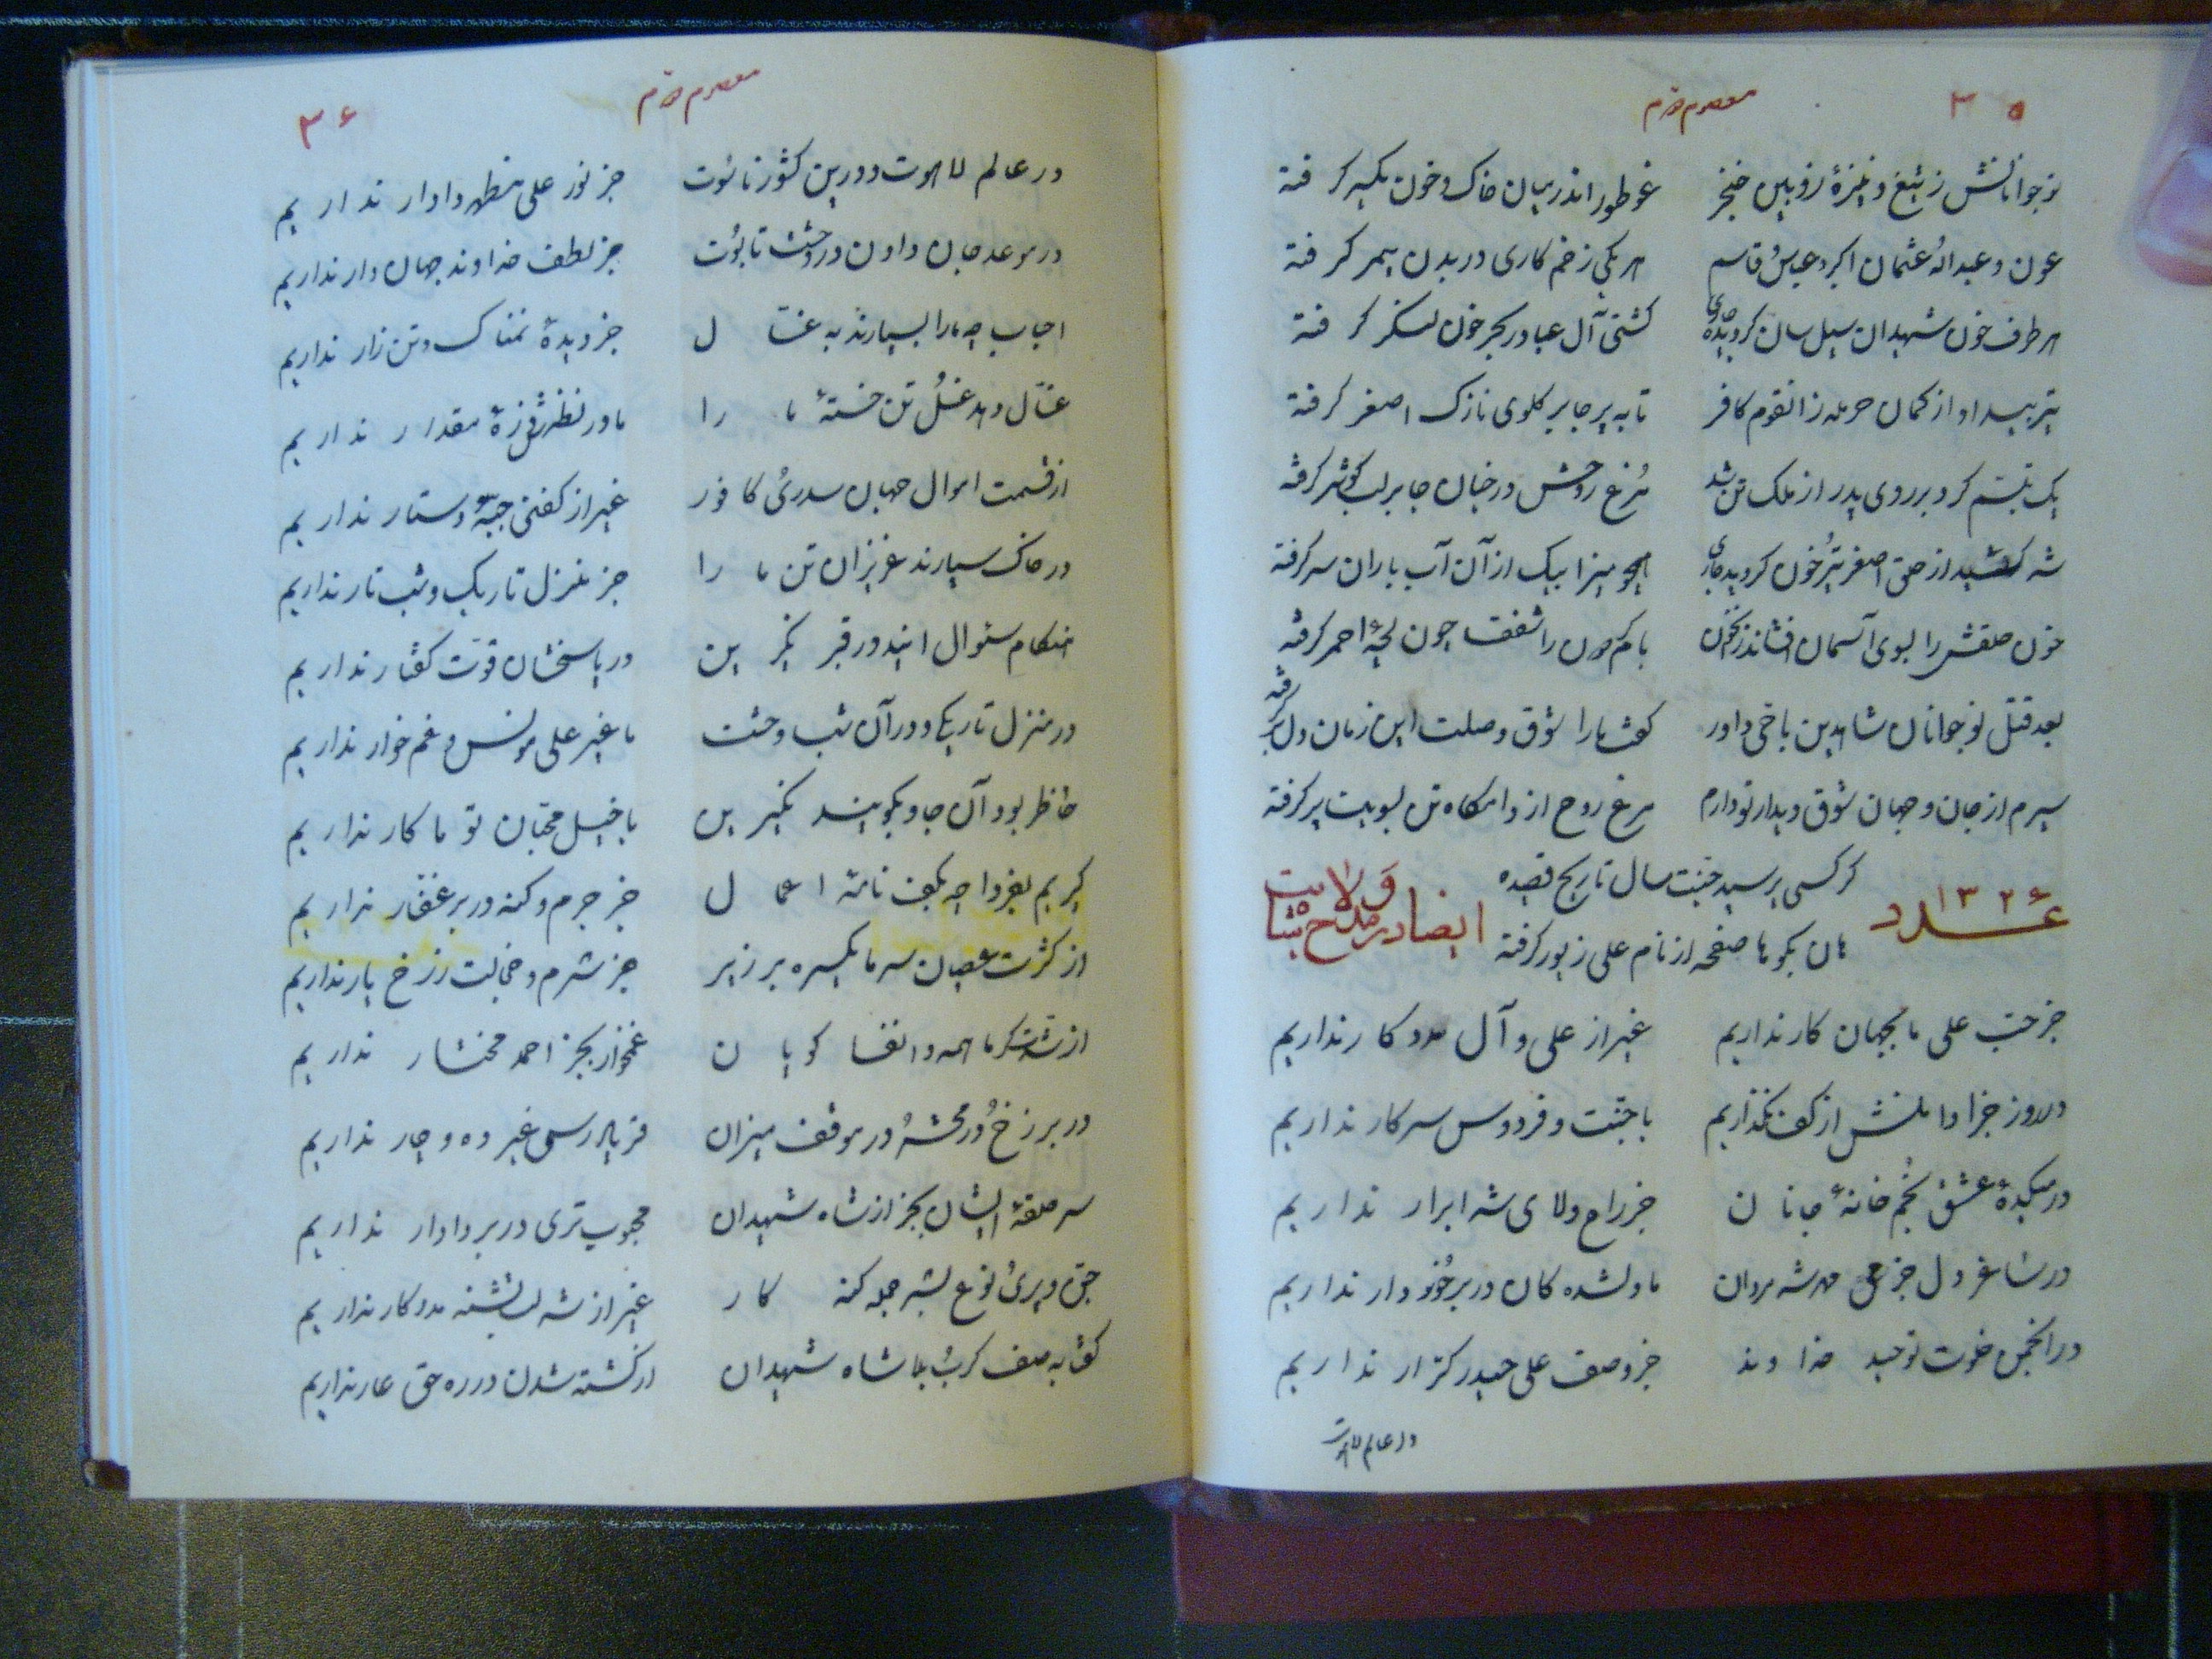 ۳۵
معصوم دوم
نوجوانانش ز تیغ و نیزهٔ زوبین خنجر غوطه‌ور اندر میان خاک و خون یکسر گرفته
عون و عبداله عثمان اکبر و عباس قاسم هر یکی زخم کاری در بدن بیمر گرفته
هر طرف خون شهیدان سیل سان گردیده جاری کشتی آل عبا در بحر خون لنگر گرفته
تیر بیداد از کمان حرمله زانقوم کافر تا به پر جا بر گلوی نازک اصغر گرفته
یک تبسم کرد بر روی پدر از ملک تن شد مرغ روحش در جنان جا بر لب کوثر گرفته
شه کشید از حلق اصغر تیر خون گردید جاری همچو میزابیک از آن آب باران سر گرفته
خون حلقش را بسوی آسمان افشاند بام گردون را شفق چون لجهٔ احمر گرفته
بعد قتل نوجوانان شاهدین با حی داور گفت ما را شوق وصلت این زمان در دل گرفته
سیرم از جان و جهان شوق دیدار تو دارم مرغ روح از دامگاه تن بسویت پر گرفته
عدد ۱۳۲۶
گر کسی پرسید چیست سال تاریخ قصیده
هان بگو ها صفحه از نام علی زیور گرفته
ایضا در مدح شاه ولایت
جز حبّ علی ما بجهان کار نداریم غیر از علی و آل مددکار نداریم
در روز جزا دامنش از کف نگذاریم با جنّت و فردوس سر کار نداریم
در میکدهٔ عشق بخُم خانهٔ جانان جز راح ولای شه ابرار نداریم
در ساغر دل جز می مهر شه مردان ما دلشده کان در بر خود دار نداریم
در انجمن خلوت توحید خداوند جز وصف علی حیدر کرّار نداریم
در عالم لاهوت
۳۶
معصوم دوم
در عالم لاهوت و درین کشور ناسوت جز نور علی مظهر دادار نداریم
در موعد جان دادن و در وحشت تابوت جز لطف خداوند جهان دار نداریم
احباب چه ما را بسپارند به غسّال جز دیدهٔ نمناک و تن زار نداریم
غسّال دهد غسل تن خستهٔ ما را ما در نظرش ذرهٔ مقدار نداریم
از قسمت اموال جهان سدر و کافور غیر از کفنی جبّه و دستار نداریم
در خاک سپارند عزیزان تن ما را جز منزل تاریک و شب تار نداریم
هنگام سئوال ایند در قبر نکیرین در پاسخشان قوّت گفتار نداریم
در منزل تاریک و در آن شب وحشت ما غیر علی مونس و غم خوار نداریم
حاظر بود آن جا و بگویند نکیرین با خیل محبّان تو ما کار نداریم
گیریم بفردا چه بکف نامهٔ اعمال جز جرم و گنه در بر غفّار نداریم
از کثرت عصیان سر ما یکسره بر زیر جز شرم و خجالت ز رخ یار نداریم
از تشنگی ما همه وانفسا گویان غمخوار بجز احمد مختار نداریم
در برزخ و در محشر و در موقف میزان فریادرسی غیر ده و چار نداریم
سر حلقهٔ ایشان بجز از شاه شهیدان محبوب‌تری در بر دادار نداریم
جنّ و پری و نوع بشر جمله گنه کار غیر از شه لب تشنه مددکار نداریم
گفتا به صف کرب و بلا شاه شهیدان از کشته شدن در ره حق عار نداریم